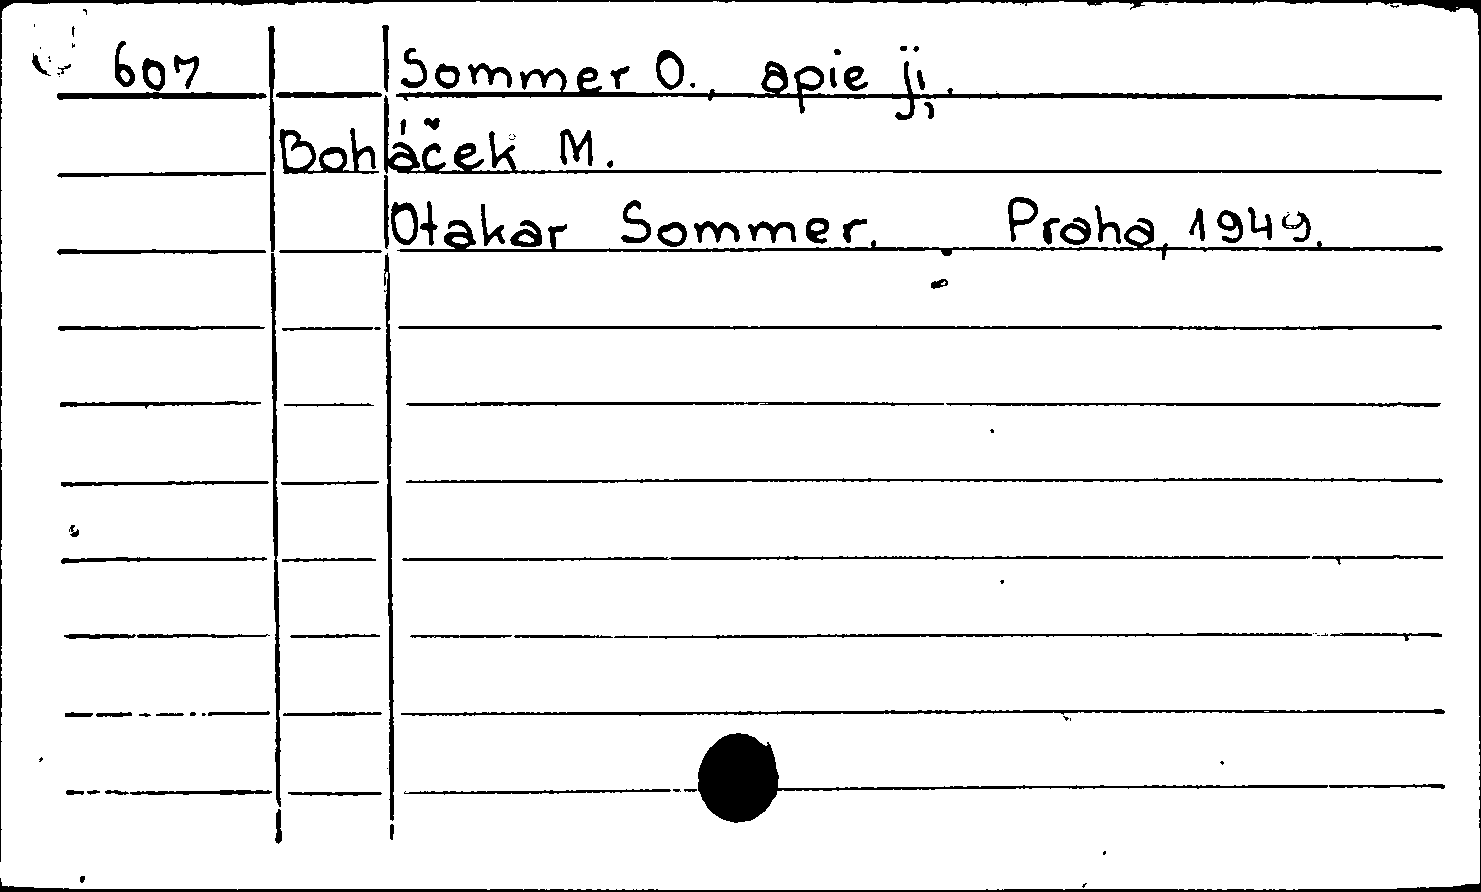 607 Sommer O., apie jį.
Boháček M.
Otakar Sommer. Praha, 1949.